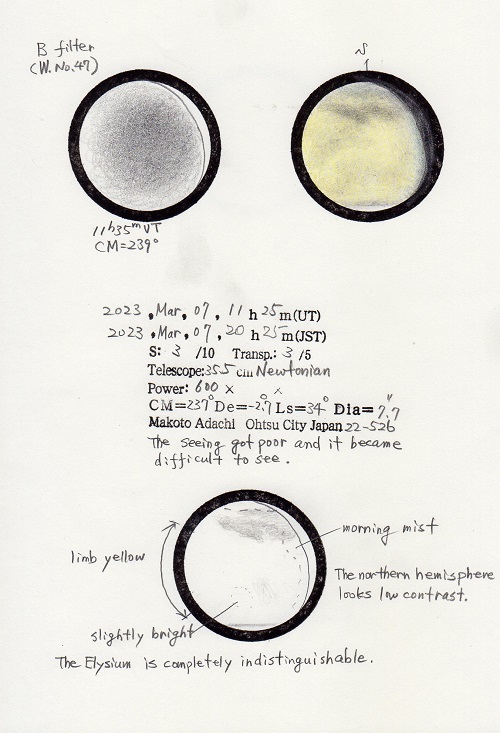 B filter
(W.No.47)
S
11h35mUT
CM=239°
2023, Mar, 07, 11 h 25 m(UT)
2023, Mar, 07, 20 h 25 m(JST)
S: 3 /10 Transp.: 3 /5
Telescope:355 cm Newtonian
Power: 600 ×
CM=237° De=-2.7° Ls=34° Dia=7.7"
Makoto Adachi Ohtsu City Japan 22-526
The seeing got poor and it became
difficult to see.
morning mist
limb yellow
The northern hemisphere
looks low contrast.
slightly bright
The Elysium is completely indistinguishable.